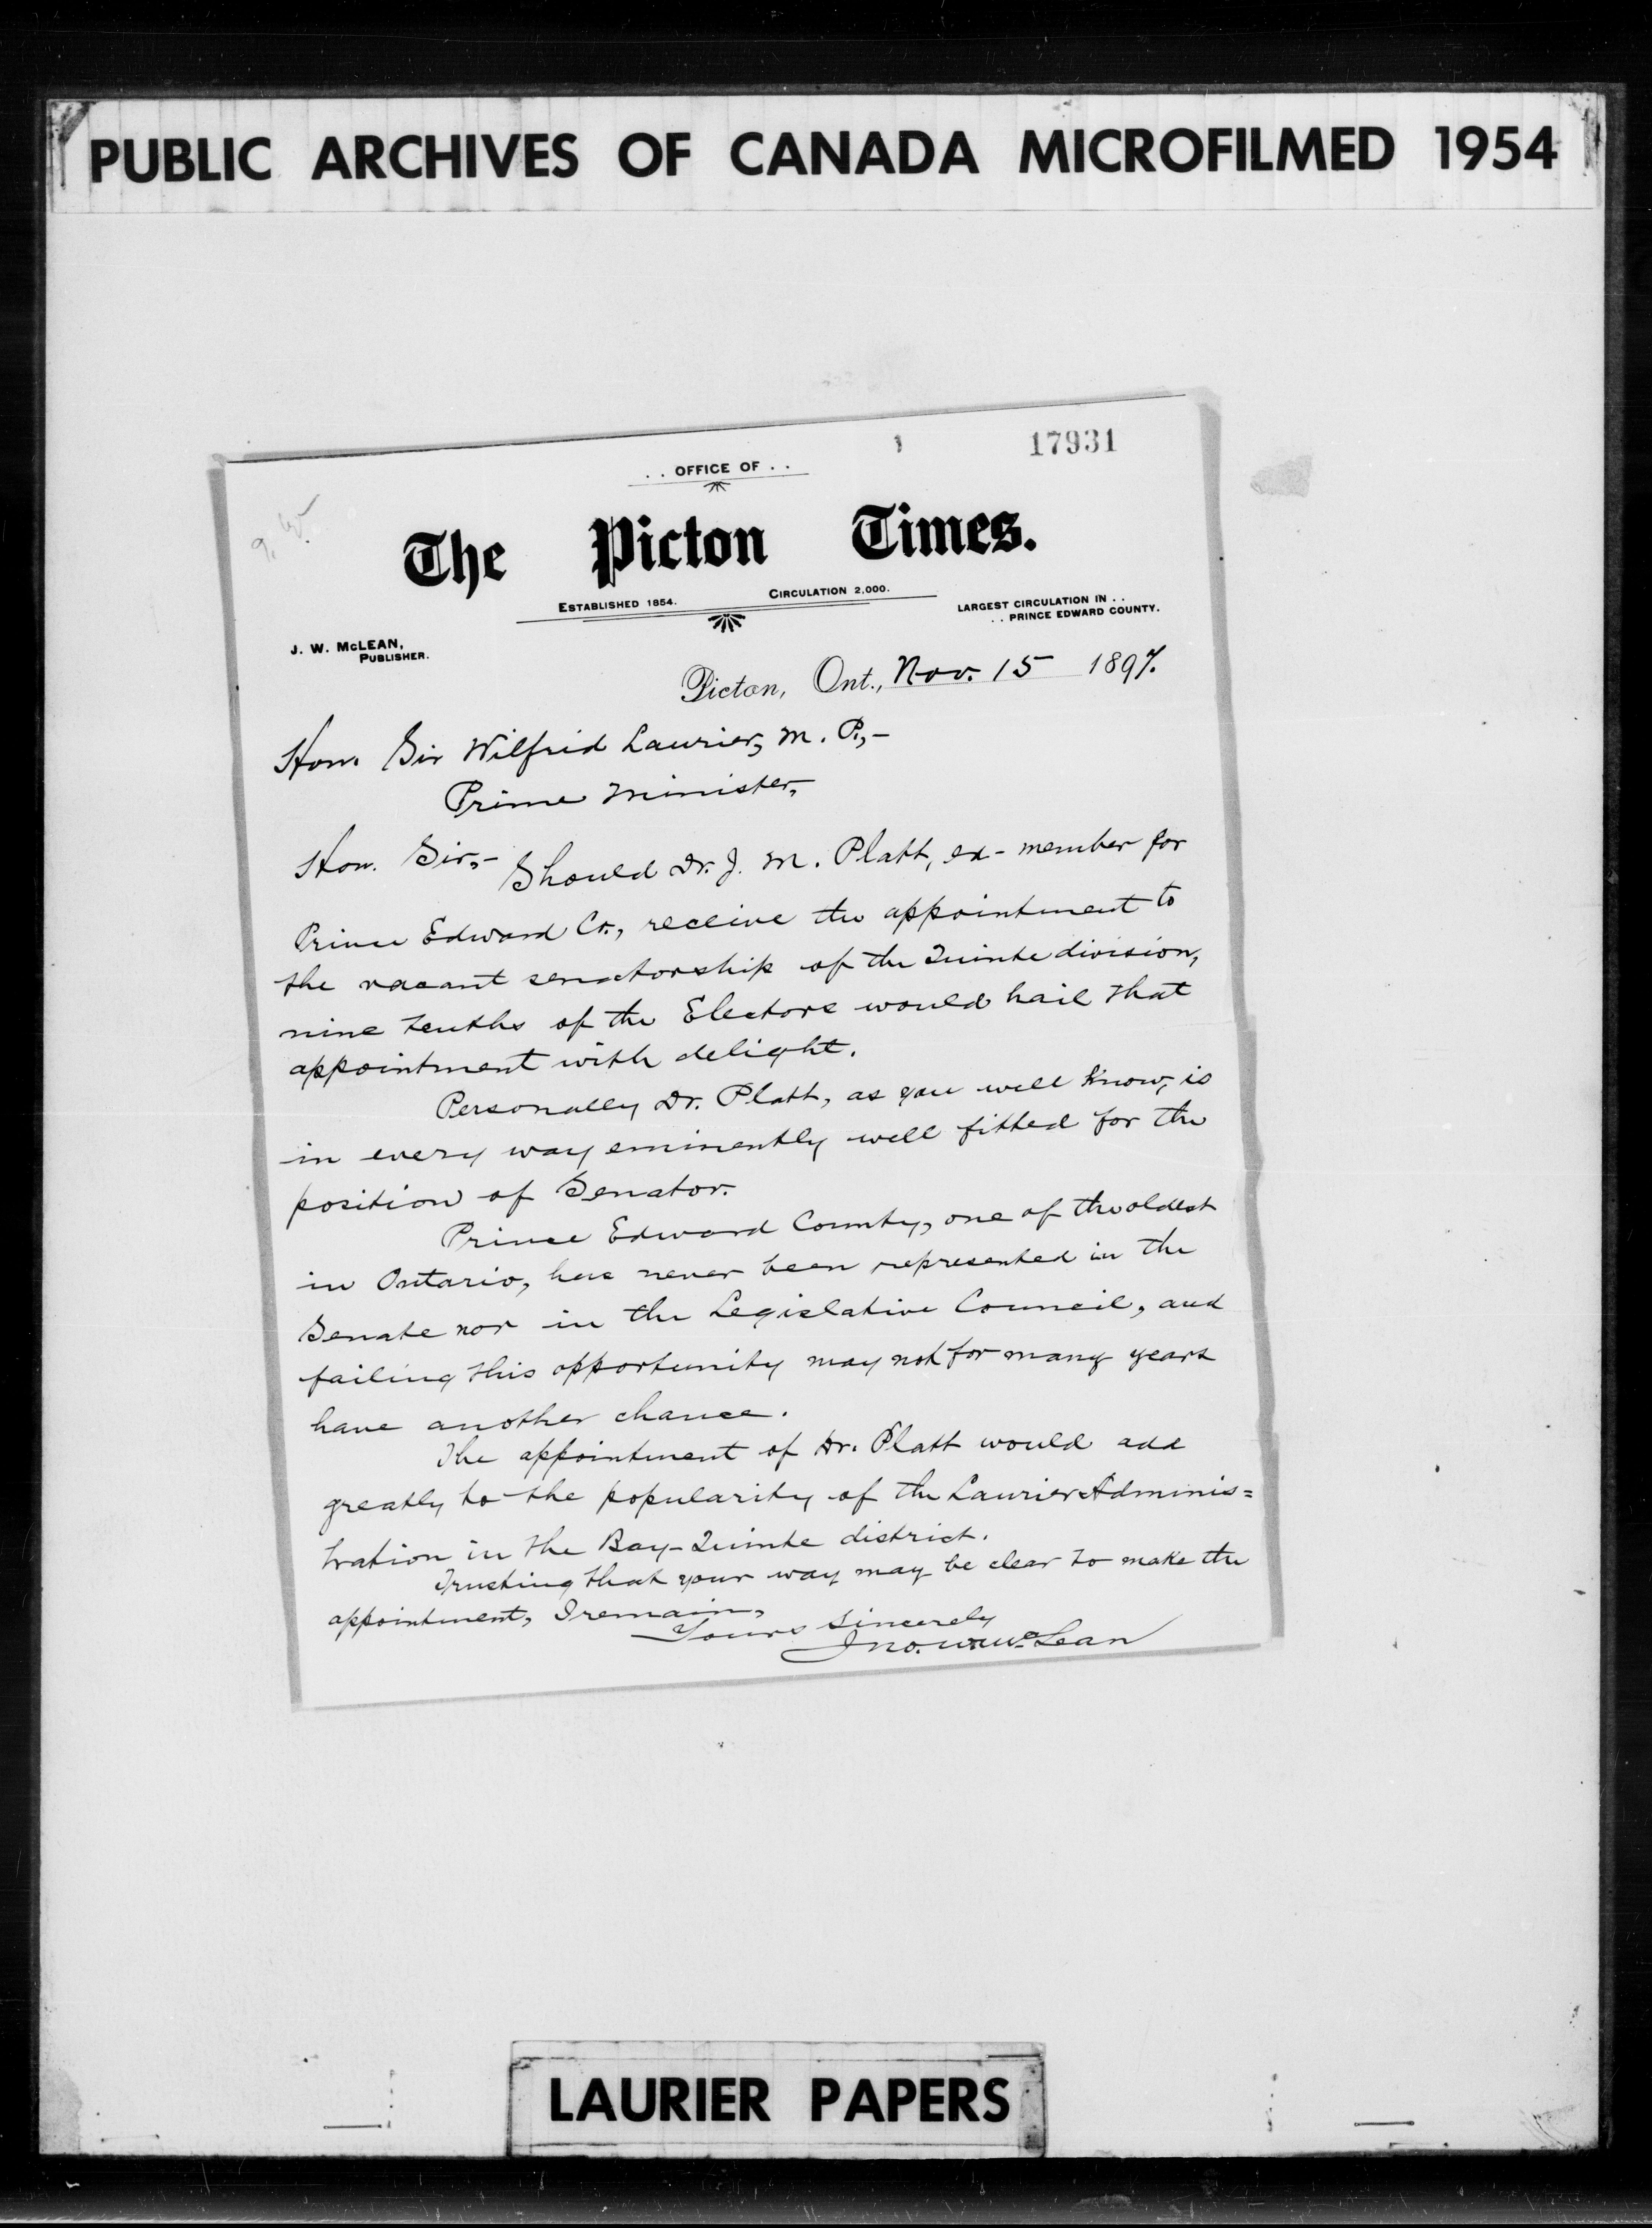 PUBLIC ARCHIVES OF CANADA MICROFILMED 1954
17931
. . OFFICE OF . .
The Picton Times.
ESTABLISHED 1854. CIRCULATION 2,000.
LARGEST CIRCULATION IN . .
. . PRINCE EDWARD COUNTY.
J. W. McLEAN,
PUBLISHER.
Picton, Ont., Nov. 15 1897.
Hon. Sir Wilfrid Laurier, M. P.,—
Prime Minister,
Hon. Sir,— Should Dr. J. M. Platt, ex-member for
Prince Edward Co., receive the appointment to
the vacant senatorship of the Quinte division,
nine tenths of the Electors would hail that
appointment with delight.
Personally Dr. Platt, as you well know, is
in every way eminently well fitted for the
position of Senator.
Prince Edward County, one of the oldest
in Ontario, has never been represented in the
Senate nor in the Legislative Council, and
failing this opportunity may not for many years
have another chance.
The appointment of Dr. Platt would add
greatly to the popularity of the Laurier Adminis=
tration in the Bay-Quinte district.
Trusting that your way may be clear to make the
appointment, I remain,
Yours sincerely
Jno. W. McLean
LAURIER PAPERS